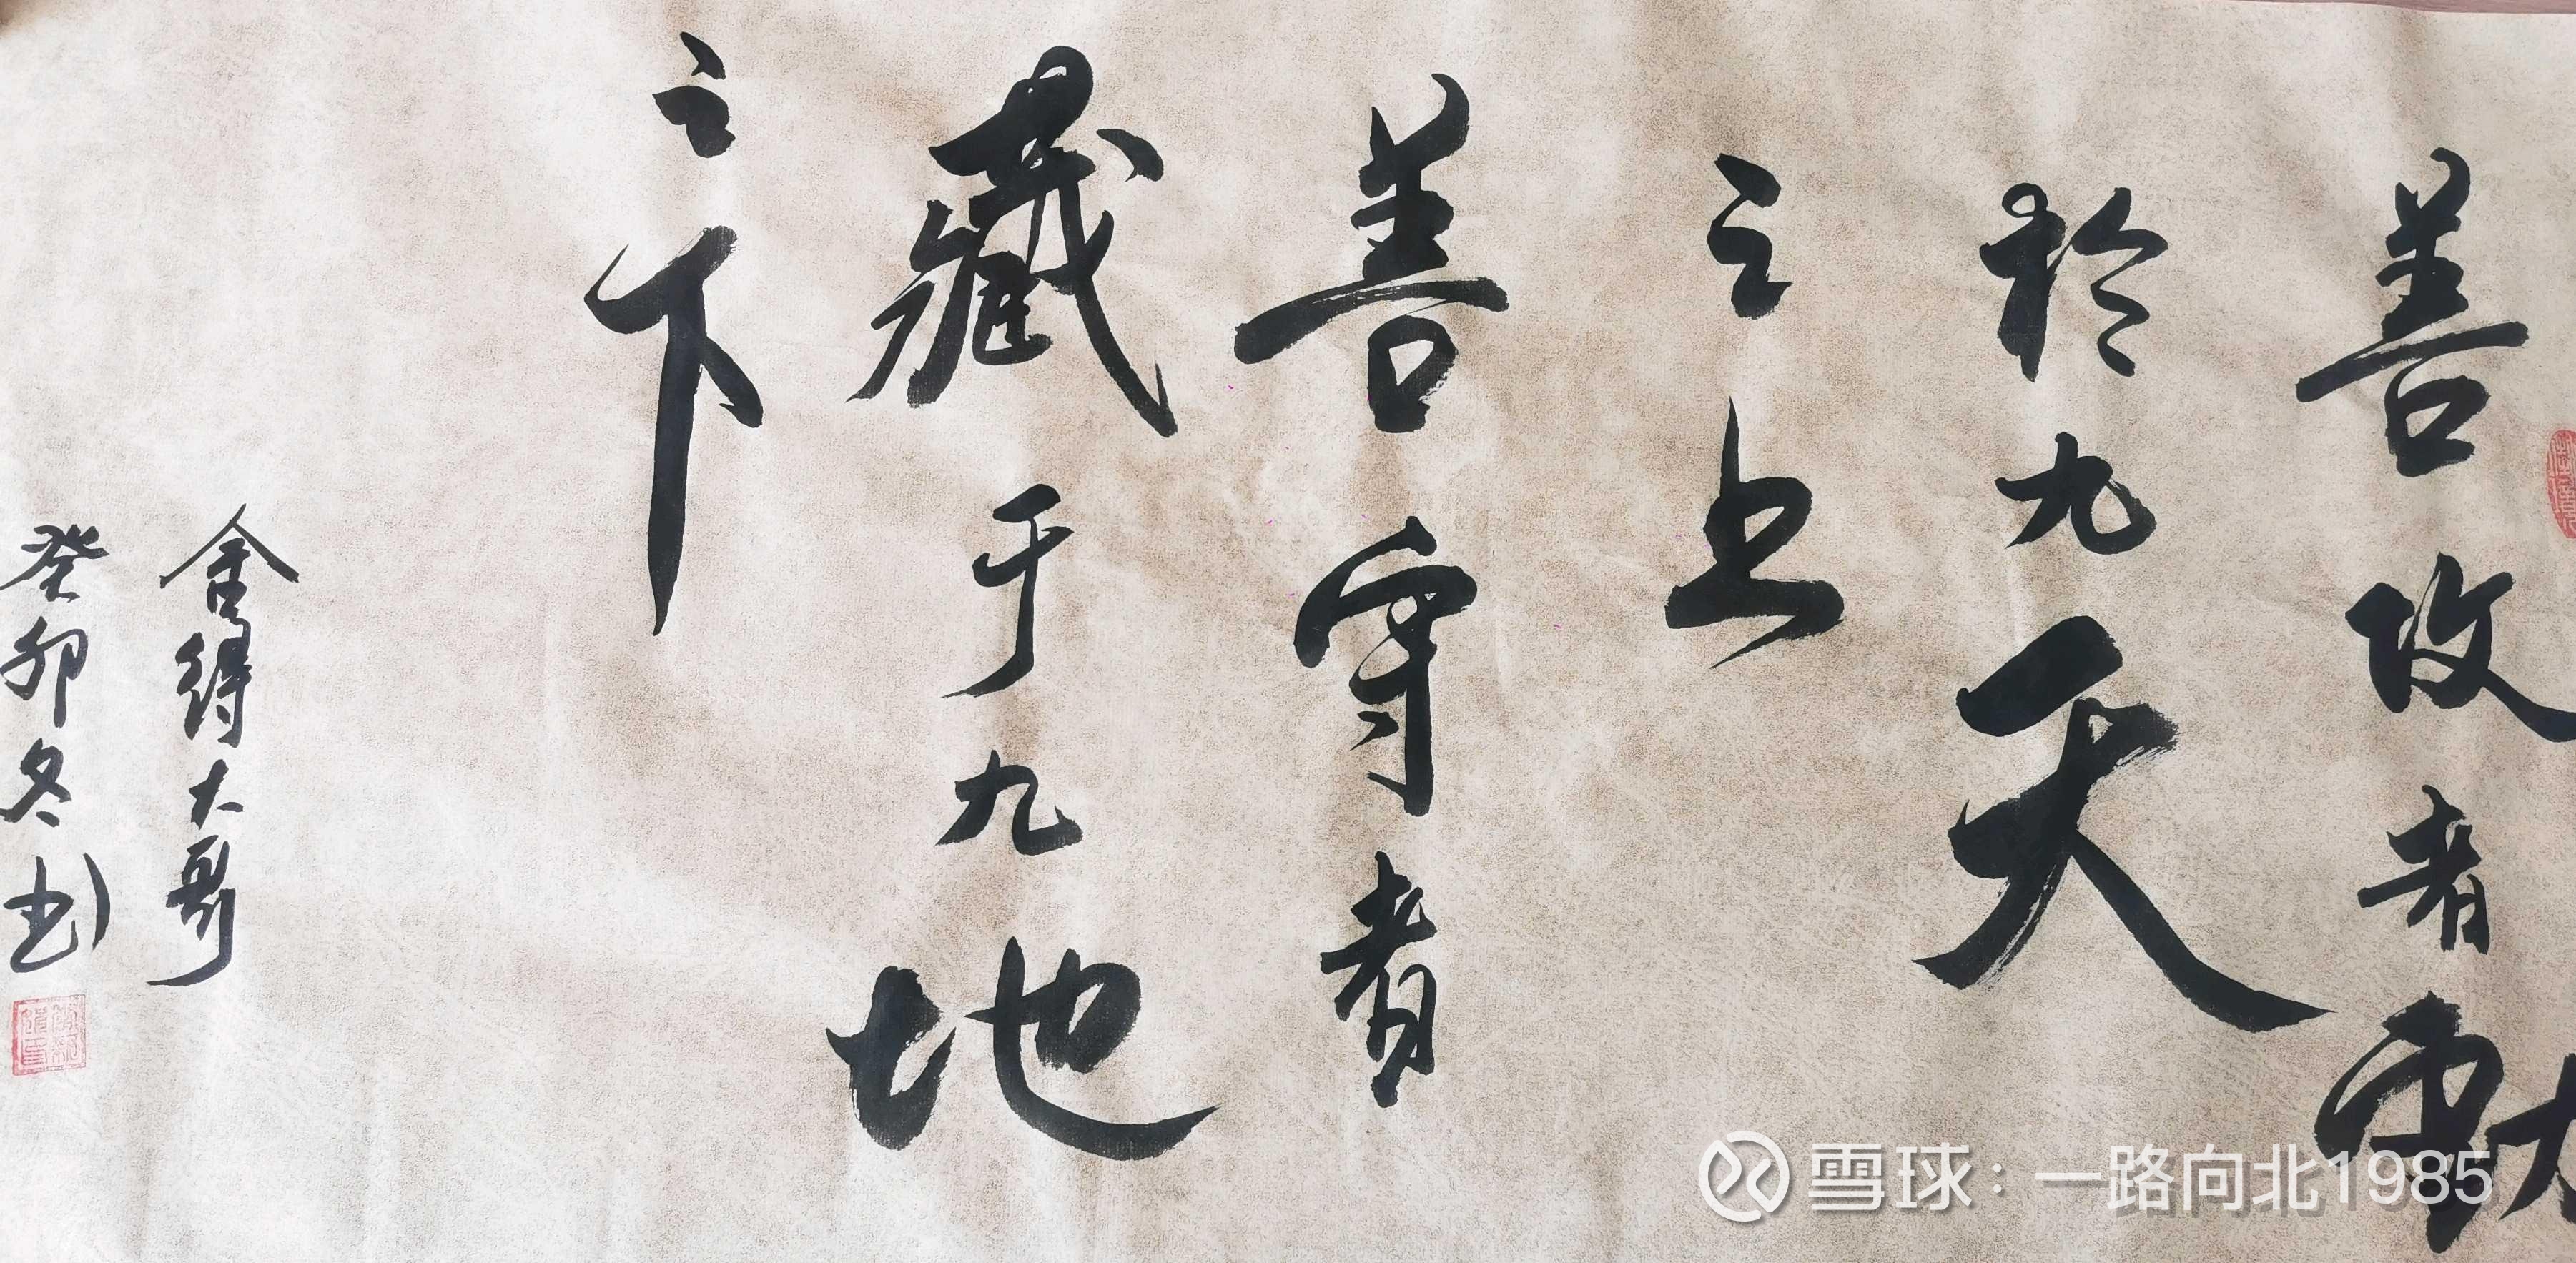 善攻者動
於九天
之上
善守者
藏于九地
之下
舍得大哥
癸卯冬书
雪球：一路向北1985